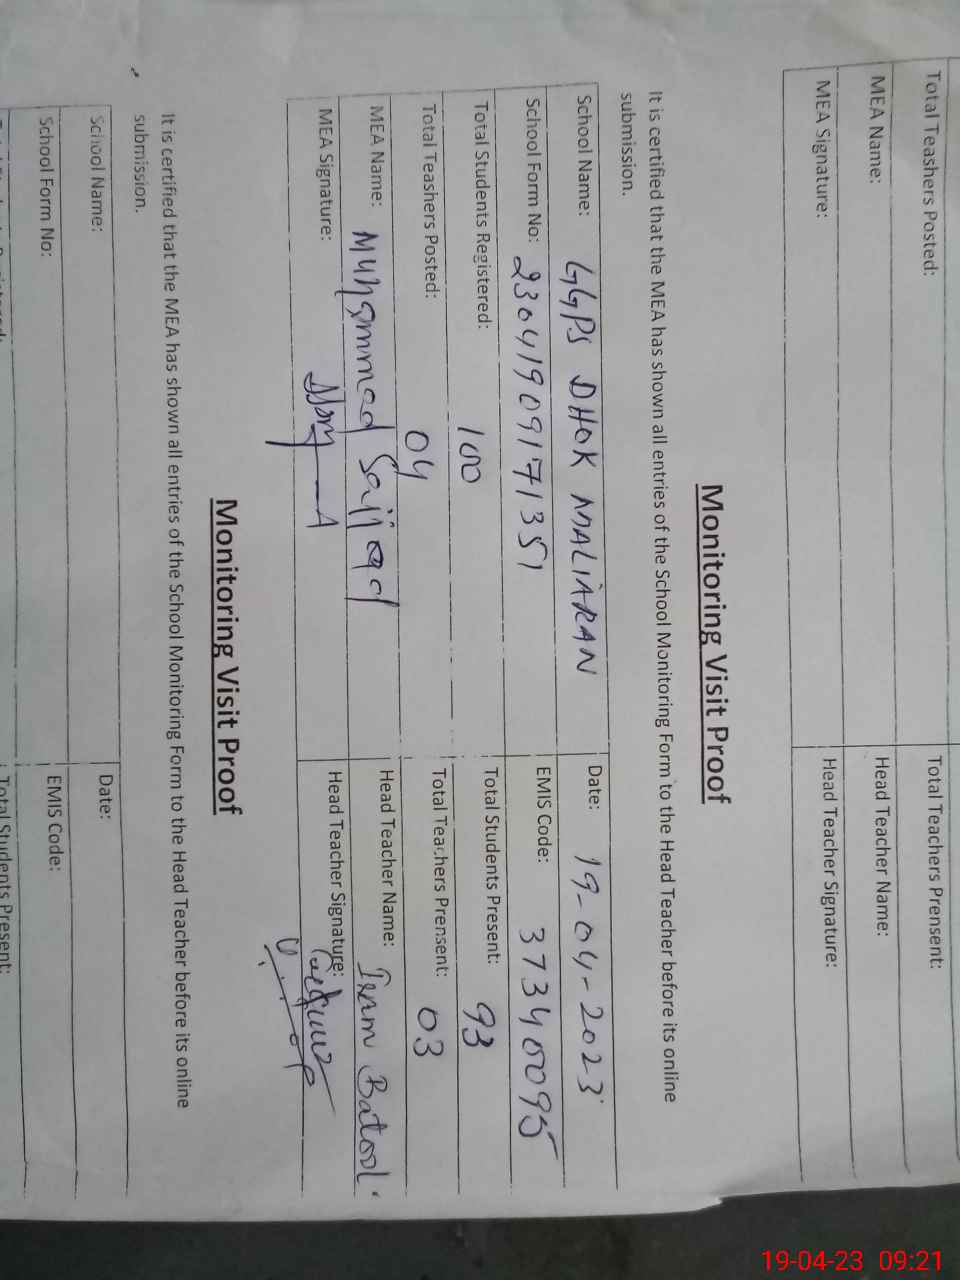 Total Teashers Posted: Total Teachers Prensent:
MEA Name: Head Teacher Name:
MEA Signature: Head Teacher Signature:
Monitoring Visit Proof
It is certified that the MEA has shown all entries of the School Monitoring Form to the Head Teacher before its online
submission.
School Name: GGPS DHOK MALIARAN Date: 19-04-2023
School Form No: 23041909171351 EMIS Code: 37340095
Total Students Registered: 100 Total Students Present: 93
Total Teashers Posted: 04 Total Teachers Prensent: 03
MEA Name: Muhammad Sajjad Head Teacher Name: Irum Batool.
MEA Signature: Head Teacher Signature:
Monitoring Visit Proof
It is certified that the MEA has shown all entries of the School Monitoring Form to the Head Teacher before its online
submission.
School Name: Date:
School Form No: EMIS Code:
Total Students Present:
19-04-23 09:21